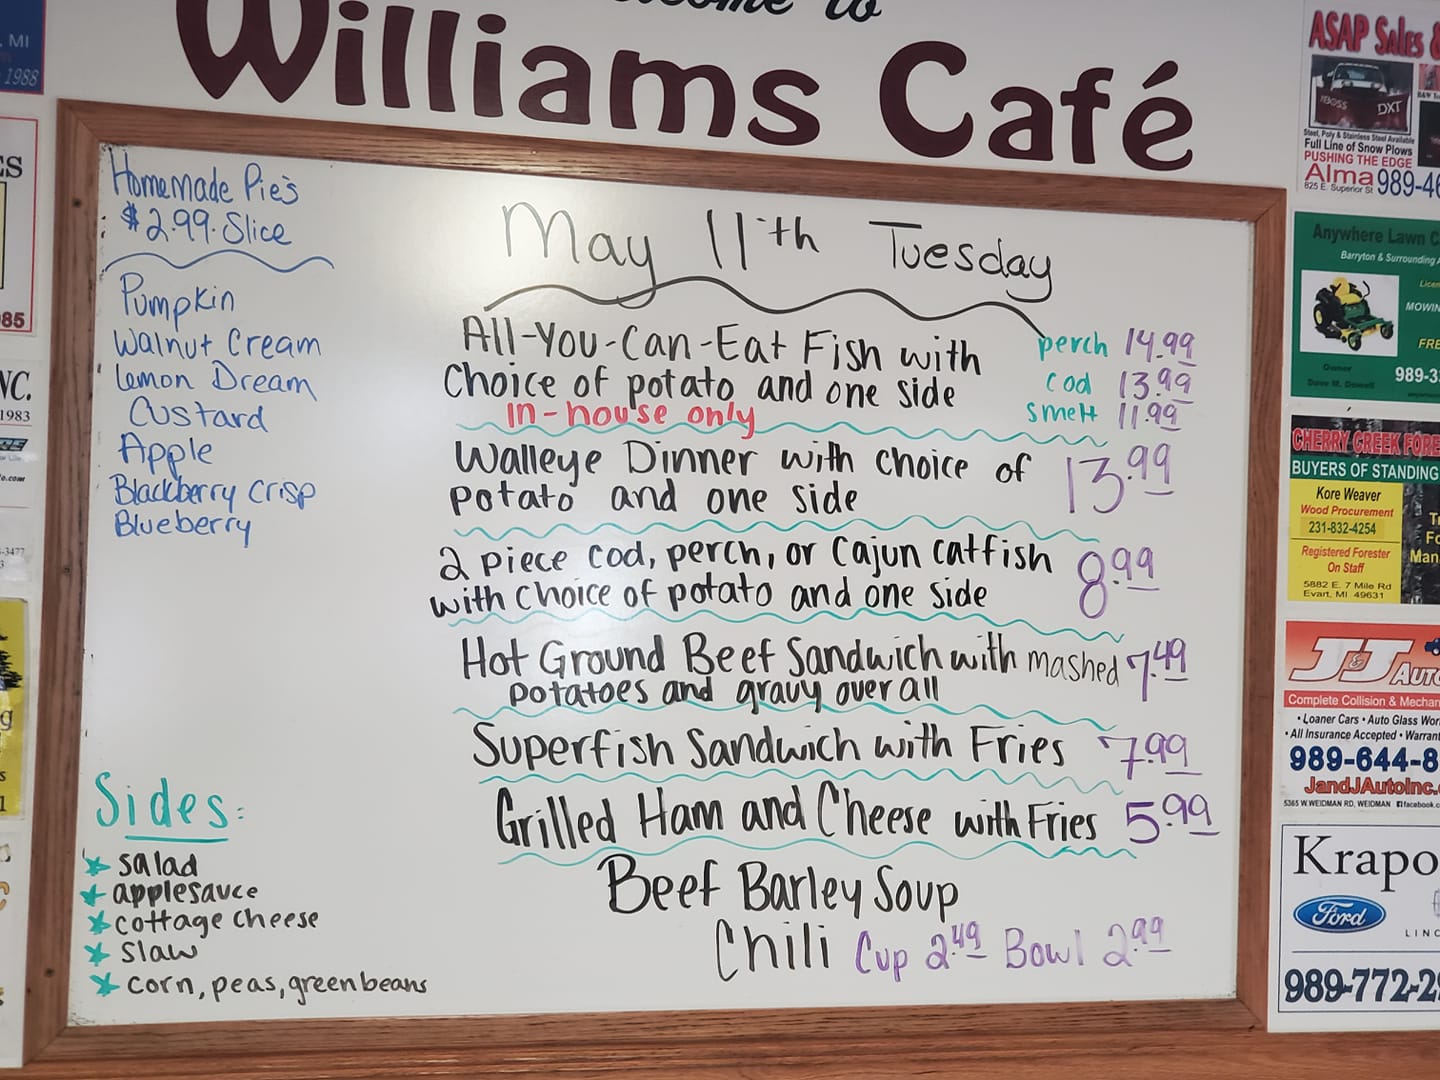 Welcome to
Williams Café
Homemade Pie's
$2.99 Slice
Pumpkin
Walnut Cream
Lemon Dream
Custard
Apple
Blackberry Crisp
Blueberry
Sides:
salad
applesauce
cottage cheese
slaw
corn, peas, greenbeans
May 11th Tuesday
All-You-Can-Eat Fish with
Choice of potato and one side
in-house only
perch 14.99
cod 13.99
smelt 11.99
Walleye Dinner with choice of
potato and one side 13.99
2 piece cod, perch, or Cajun catfish
with choice of potato and one side 8.99
Hot Ground Beef Sandwich with mashed 7.49
potatoes and gravy over all
Superfish Sandwich with Fries 7.99
Grilled Ham and Cheese with Fries 5.99
Beef Barley Soup
Chili Cup 2.49 Bowl 2.99
, MI
1988
ES
85
NC.
1983
-3477
ASAP Sales &
BOSS DXT
Steel, Poly & Stainless Steel Available
Full Line of Snow Plows
PUSHING THE EDGE
Alma
825 E. Superior St 989-46
Anywhere Lawn C
Barryton & Surrounding A
MOWIN
FRE
Owner
989-3
CHERRY CREEK FORE
BUYERS OF STANDING
Kore Weaver
Wood Procurement
231-832-4254
Registered Forester
On Staff
5882 E. 7 Mile Rd
Evart, MI 49631
J&J AUTO
Complete Collision & Mechan
• Loaner Cars • Auto Glass Wor
• All Insurance Accepted • Warrant
989-644-8
JandJAutoInc.
5365 W. WEIDMAN RD, WEIDMAN facebook.c
Krapo
Ford
LINC
989-772-2